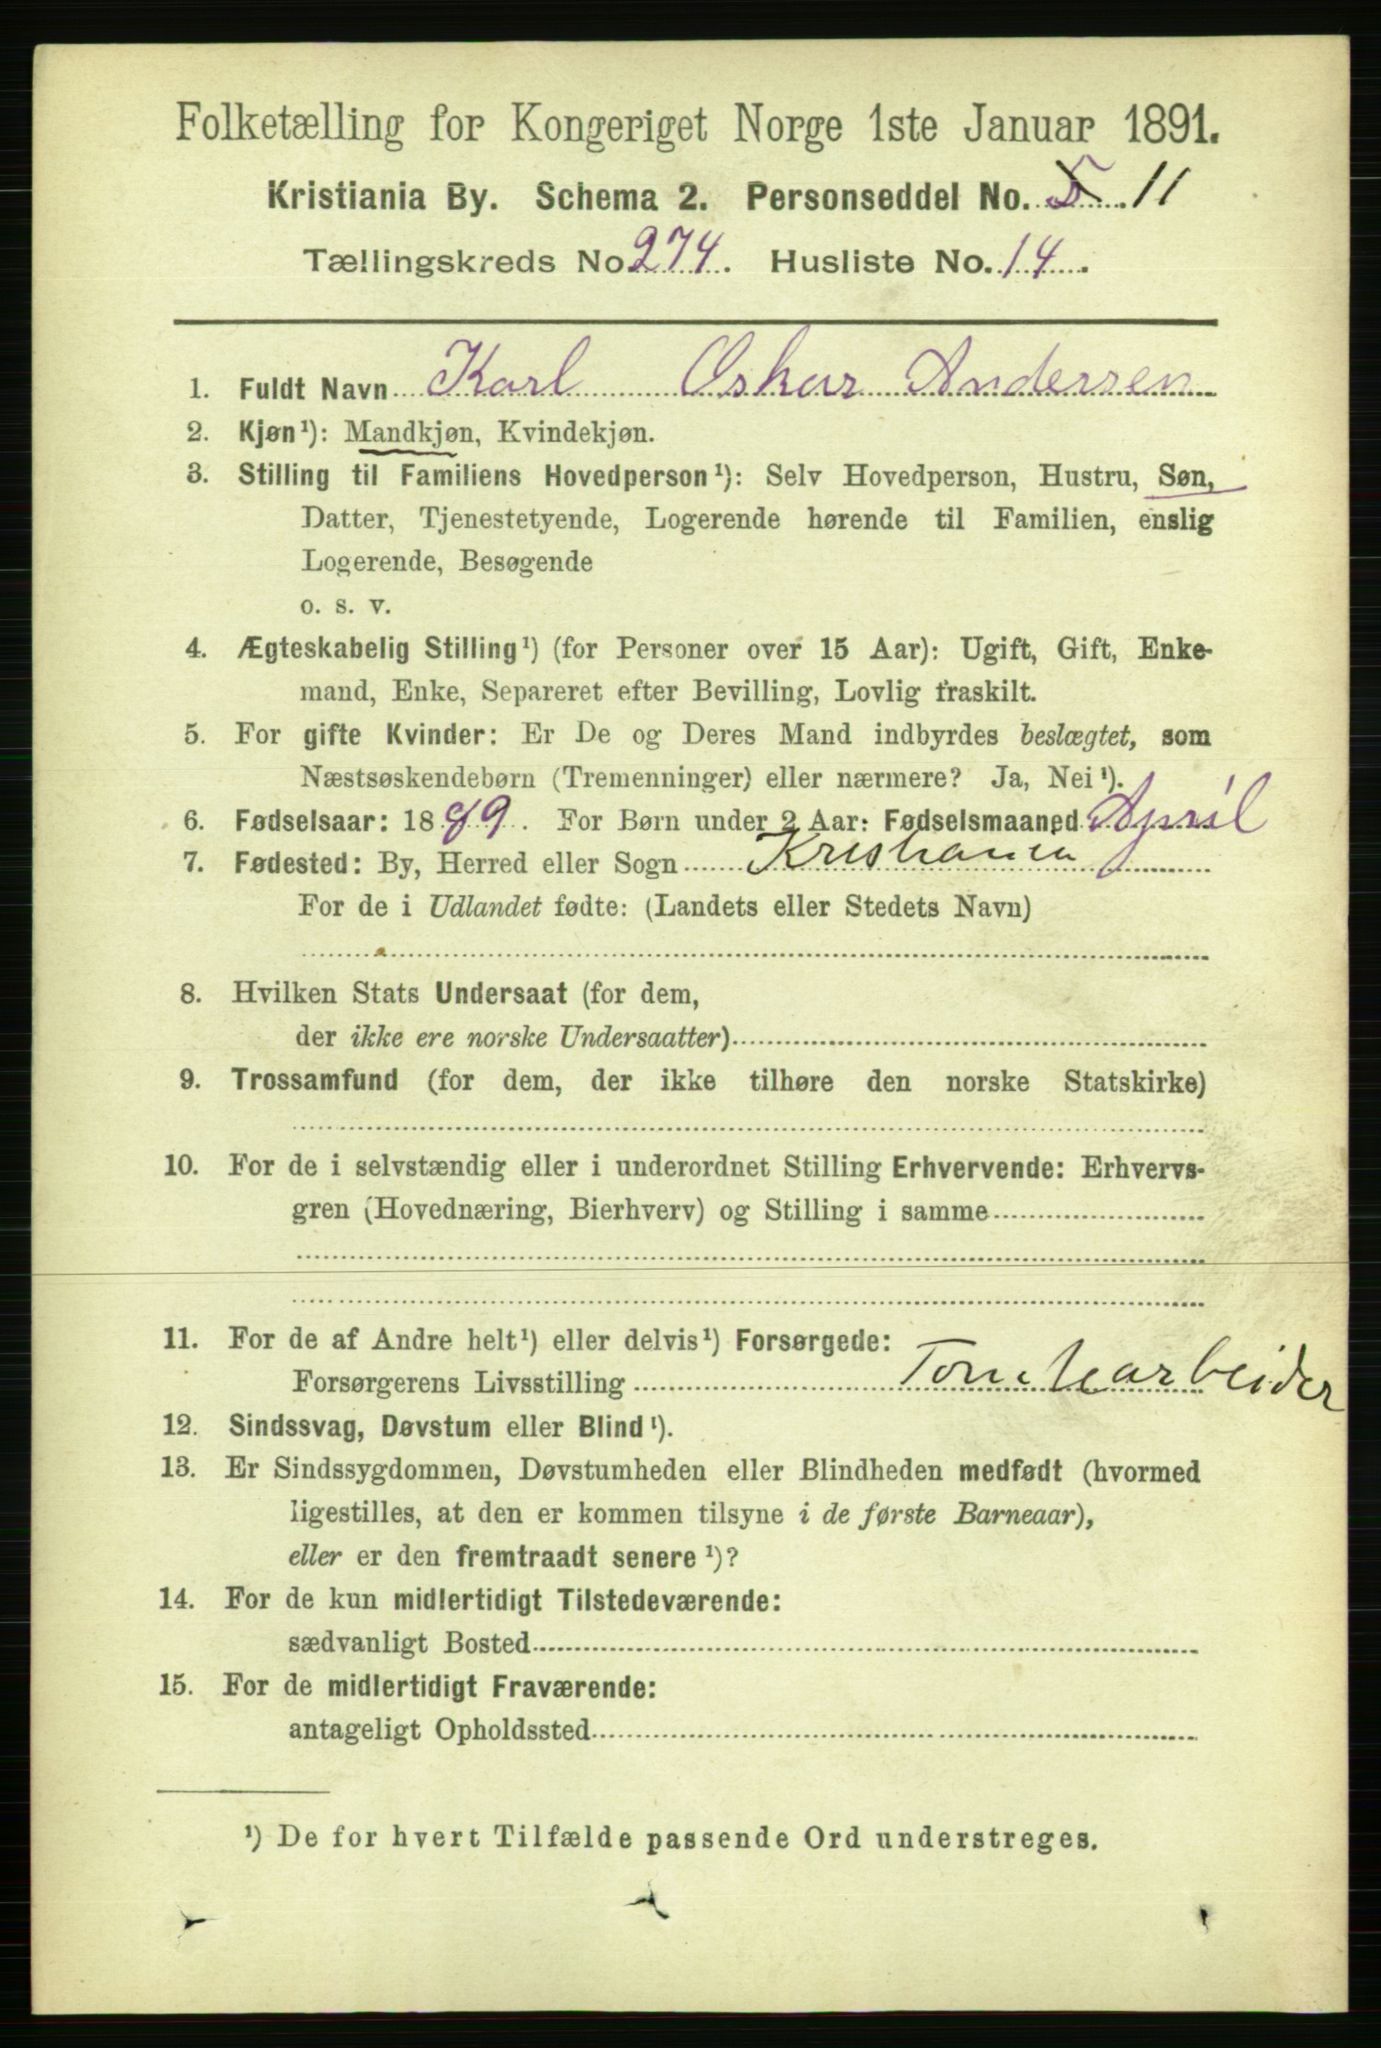 Folketælling for Kongeriget Norge 1ste Januar 1891.
Kristiania By. Schema 2. Personseddel No. 5 11
Tællingskreds No 274. Husliste No. 14.
1. Fuldt Navn Karl Oskar Andersen
2. Kjøn¹): Mandkjøn, Kvindekjøn.
3. Stilling til Familiens Hovedperson¹): Selv Hovedperson, Hustru, Søn,
Datter, Tjenestetyende, Logerende hørende til Familien, enslig
Logerende, Besøgende
o. s. v.
4. Ægteskabelig Stilling¹) (for Personer over 15 Aar): Ugift, Gift, Enke-
mand, Enke, Separeret efter Bevilling, Lovlig fraskilt.
5. For gifte Kvinder: Er De og Deres Mand indbyrdes beslægtet, som
Næstsøskendebørn (Tremenninger) eller nærmere? Ja, Nei¹).
6. Fødselsaar: 1889. For Børn under 2 Aar: Fødselsmaaned April
7. Fødested: By, Herred eller Sogn Kristiania
For de i Udlandet fødte: (Landets eller Stedets Navn)
8. Hvilken Stats Undersaat (for dem,
der ikke ere norske Undersaatter)
9. Trossamfund (for dem, der ikke tilhøre den norske Statskirke)
10. For de i selvstændig eller i underordnet Stilling Erhvervende: Erhvervs-
gren (Hovednæring, Bierhverv) og Stilling i samme
11. For de af Andre helt¹) eller delvis¹) Forsørgede:
Forsørgerens Livsstilling
12. Sindssvag, Døvstum eller Blind¹).
13. Er Sindssygdommen, Døvstumheden eller Blindheden medfødt (hvormed
ligestilles, at den er kommen tilsyne i de første Barneaar),
eller er den fremtraadt senere¹)?
14. For de kun midlertidigt Tilstedeværende:
sædvanligt Bosted
15. For de midlertidigt Fraværende:
antageligt Opholdssted
¹) De for hvert Tilfælde passende Ord understreges.